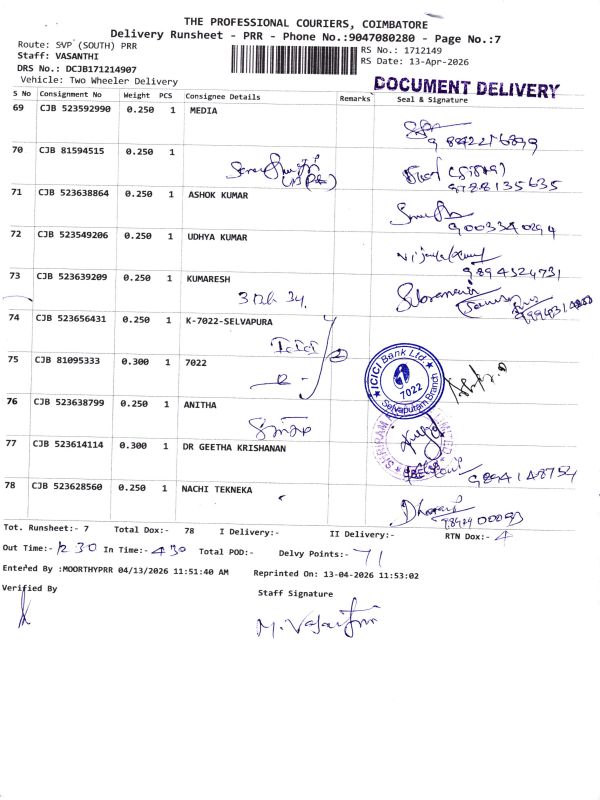 THE PROFESSIONAL COURIERS, COIMBATORE
Delivery Runsheet - PRR - Phone No.:9047080280 - Page No.:7
Route: SVP (SOUTH) PRR
RS No.: 1712149
Staff: VASANTHI
RS Date: 13-Apr-2026
DRS No.: DCJB171214907
Vehicle: Two Wheeler Delivery
DOCUMENT DELIVERY
S No Consignment No Weight PCS Consignee Details Remarks Seal & Signature
69 CJB 523592990 0.250 1 MEDIA
70 CJB 81594515 0.250 1
9788135635
71 CJB 523638864 0.250 1 ASHOK KUMAR
9003340294
72 CJB 523549206 0.250 1 UDHYA KUMAR
9894524731
73 CJB 523639209 0.250 1 KUMARESH
74 CJB 523656431 0.250 1 K-7022-SELVAPURA
ICICI
75 CJB 81095333 0.300 1 7022
ICICI Bank Ltd.
7022
Selvapuram Branch
76 CJB 523638799 0.250 1 ANITHA
77 CJB 523614114 0.300 1 DR GEETHA KRISHANAN
SHRIRAM
9894148754
78 CJB 523628560 0.250 1 NACHI TEKNEKA
Tot. Runsheet:- 7 Total Dox:- 78 I Delivery:- II Delivery:- RTN Dox:- 4
Out Time:- 12 30 In Time:- 4 30 Total POD:- Delvy Points:- 71
Entered By :MOORTHYPRR 04/13/2026 11:51:40 AM Reprinted On: 13-04-2026 11:53:02
Verified By
Staff Signature
M. Vasanthi